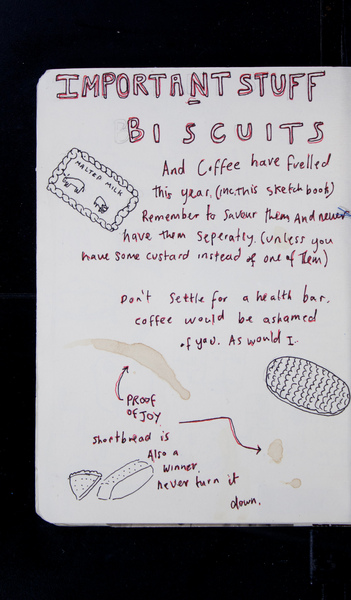 IMPORTANT STUFF
BISCUITS
MALTED MILK
And Coffee have fuelled
this year. (inc. this sketchbook)
Remember to savour them and never
have them seperatly. (unless you
have some custard instead of one of them)
Don't settle for a health bar.
coffee would be ashamed
of you. As would I.
PROOF
OF JOY.
Shortbread is
Also a
winner.
Never turn it
down.